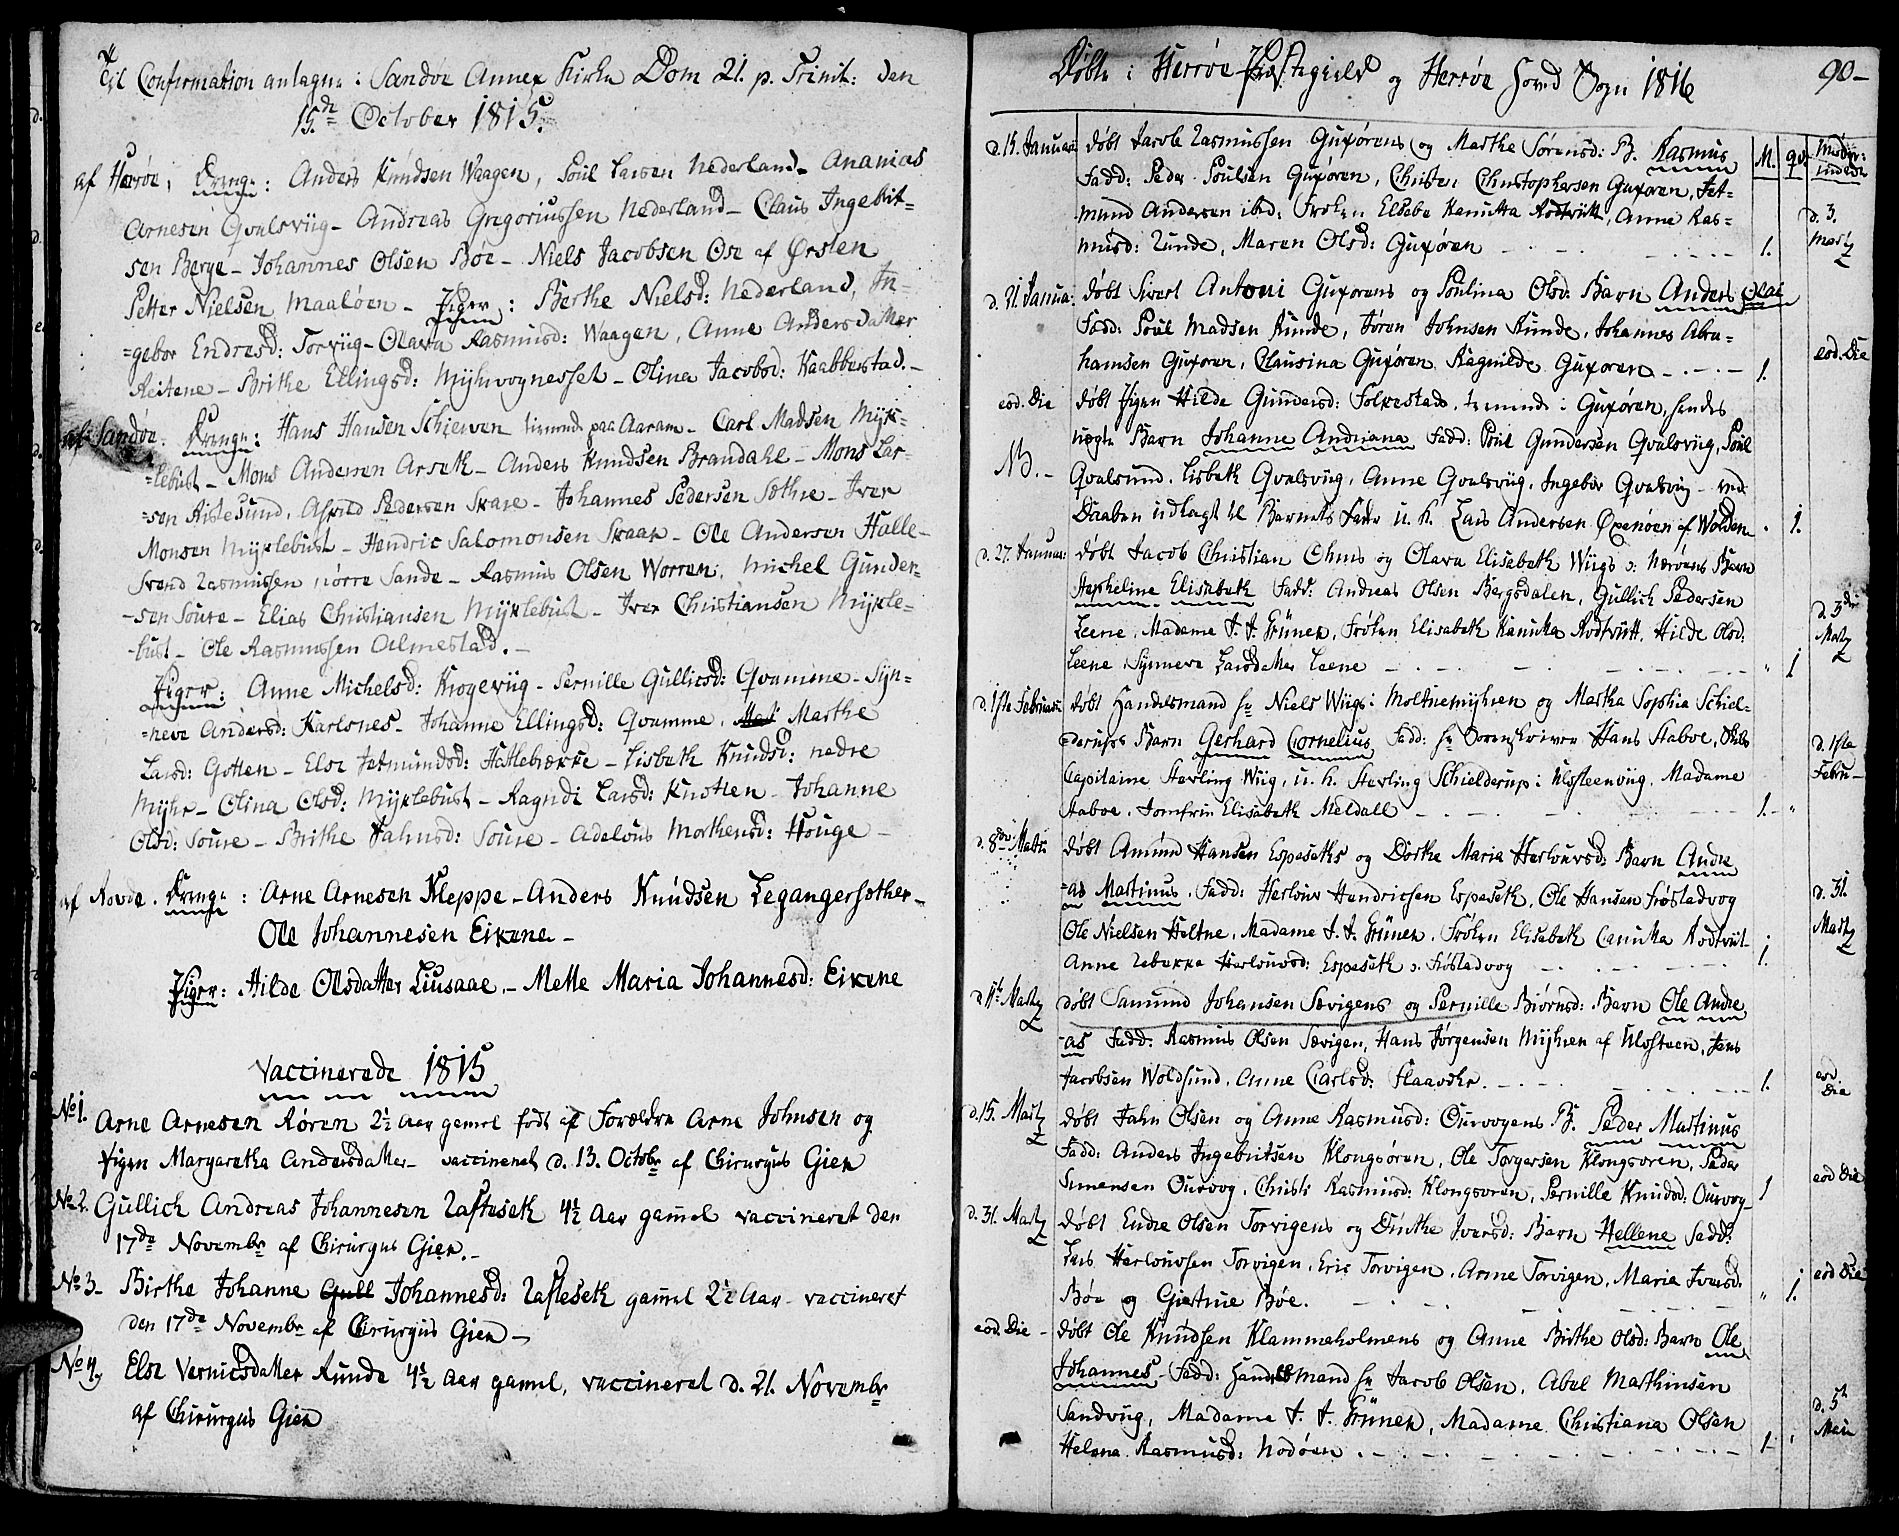 Til Confirmation antagne i Sandøe Annex Kirke Dom 21. p. Trinit: den
15de October 1815.
af Herrøe, Drenge: Anders Knudsen Waagen, Poul Larsen Nederland - Ananias
Arnesen Qvalsviig - Andreas Gregoriussen Nederland - Claus Ingebrit=
sen Berge - Johannes Olsen Bøe - Niels Jacobsen Ose af Ørsten
Petter Nielsen Maaløen - Piger: Berthe Nielsd: Nederland, In=
=gebor Endresd: Torviig - Olava Rasmusd: Waagen, Anne Andersdatter
Reitene - Brithe Ellingsd: Myhrvognesset - Olina Jacobsd: Kaabberstad. -
af Sandøe. Drenge: Hans Hansen Schierven tienende paa Aaram - Carl Madsen Myk=
=lebust - Mons Andersen Arseth - Anders Knudsen Brandahl - Mons Lar=
=sen Ristesund, Asfred Pedersen Skare - Johannes Pedersen Sæthre - Iver
Monsen Myklebust - Hendric Salomonsen Skaar - Ole Andersen Halle -
Svend Rasmussen nørre Sande - Rasmus Olsen Worren, Michel Gunder=
-sen Soure - Elias Christiansen Myklebust - Iver Christiansen Mykle=
-bust - Ole Rasmussen Almestad. -
Piger: Anne Michelsd: Krogeviig - Pernille Gullicsd: Qvamme - Syn=
=neve Andersd: Karlsnes - Johanne Ellingsd: Qvamme, Marthe
Larsd: Gotten - Else Jetmundsd: Hattlebrekke - Lisbeth Knudsd: nedre
Myhr - Olina Olsd: Myklebust - Ragndi Larsd: Knotten - Johanne
Olsd: Soure - Brithe Jahnsd: Soure - Adelous Morthensd: Houge -
af Rovde. Drenge: Arne Arnesen Kleppe - Anders Knudsen Legangersother -
Ole Johannesen Eikene -
Piger: Hilde Olsdatter Liusaae - Mette Maria Johannesd: Eikene
Vaccinerede 1815
No 1. Arne Arnesen Røren 2½ Aar gamel født af Forældre Arne Johnsen og
Pigen Margaretha Andersdatter - vaccineret d. 13. Octobr af Chirurgus Gien
No 2. Gullich Andreas Johannesen Rafteseth 4½ Aar gamel vaccineret den
17de Novembr af Chirurgus Gien. -
No 3 - Birthe Johanne Gull Johannesd: Rafteseth gamel 2½ Aar - vaccineret
den 17de Novembr af Chirurgus Gien -
No 4, Else Vernicsdatter Runde 4½ Aar gamel, vaccineret d. 21. Novembr
af Chirurgus Gien
Døbte i Herrøe Præstegield og Herrøe Hoved Sogn 1816
90 -
d. 15. Januar døbt Jacob Rasmussen Guxørens og Marthe Sørensd: B. Rasmus M. qv.
Fadd: Peder Poulsen Guxøren, Christen Christophersen Guxøren, Jet-
mund Andersen ibid: Frøken Elsabe Kanutta Rodtvitt, Anne Ras= d. 3.
musd: Runde, Maren Olsd: Guxøren 1. Martz
d. 21. Janua: døbt Sivert Antoni Guxorens og Poulina Olsd: Barn Anders Olai
Fadd: Poul Madsen Runde, Jøren Johnsen Runde, Johannes Abra=
hamsen Guxøren, Clausina Guxøren Ragnilde Guxøren 1. eod. Die
eod. Die døbt Pigen Hilde Gundersd: Folkestad, tienende i Guxøren, hendes
uegte Barn Johanne Andriana Fadd: Poul Gundersen Qvalsviig, Poul
NB. - Qvalsund, Lisbeth Qvalsviig, Anne Qvalsviig, Ingebor Qvalsviig - ved
Daaben udlagt til Barnets Fader u. k. Lars Andersen Øxenøen af Wolden 1.
d. 27. Januar døbt Jacob Christian Ohms og Olava Elisabeth Wiigs a: Nervøens Barn
Hepheline Elisabeth Fadd: Andreas Olsen Bergsdalen, Gullich Pedersen
Leene, Madame J. J. Grüner, Frøken Elisabeth Kanutta Rodtvitt, Hilde Olsd: d. 3de
Leene, Synneve Larsdatter Leene 1 Martz
d. 1ste Februar døbt Handelsmand hr Niels Wiigs i Moltuemyhren og Martha Sophia Schiel-
=derups Barn Gerhard Cornelius, Fadd: hr Sorenskriver Hans Staboe, Skibs d. 1ste
Capitaine Sterling Wiig, u. k. Sterling Schielderup i Ulfsteenviig, Madame Febru -
Staboe, Jomfrue Elisabeth Meldall 1. -
d. 8de Martz døbt Amund Hansen Espeseths og Dorthe Maria Herlouvsd: Barn Andre
=as Martinus, Fadd: Herlouv Hendrichsen Espeseth, Ole Hansen Frøstadvog d. 31.
Ole Nielsen Heltne, Madame J. J. Grüner, Frøken Elisabeth Canutta Rodtvitt Martz
Anne Rebekka Herlouvsd: Espeseth a: Frøstadvog 1.
d. 11te Martz døbt Samund Johansen Sævigens og Pernille Biørnsd: Barn Ole Andre
-as Fadd: Rasmus Olsen Sævigen, Hans Jørgensen Myhren af Ulfsteen, Jens
Jacobsen Woldsund, Anne Carlsd: Flaavær. 1. eod Die
d. 15. Martz døbt Jahn Olsen og Anne Rasmusd: Ourvogens B. Peder Martinus
Fadd: Anders Ingebritsen Klongsøren, Ole Torgersen Klongsøren, Peder
Simensen Ourvog, Christi Rasmusd: Klongsøren, Pernille Knudsd: Ourvog 1 eod Die
d. 31. Martz døbt Endre Olsen Torvigens og Dorthe Iversd: Barn Hellene Fadd:
Lars Herlouvsen Torvigen, Eric Torvigen, Anne Torvigen, Maria Iversd:
Bøe og Giertrue Bøe. 1. eod Die
eod. Die - døbt Ole Knudsen Klammeholmens og Anne Birthe Olsd: Barn Ole
Johannes - Fadd: Handelsmand hr Jacob Olsen, Abel Marthinsen
Sandviig, Madame J. J. Grüner, Madame Christiana Olsen d. 5te
Helena Rasmusd: Nodøen 1 - Maii